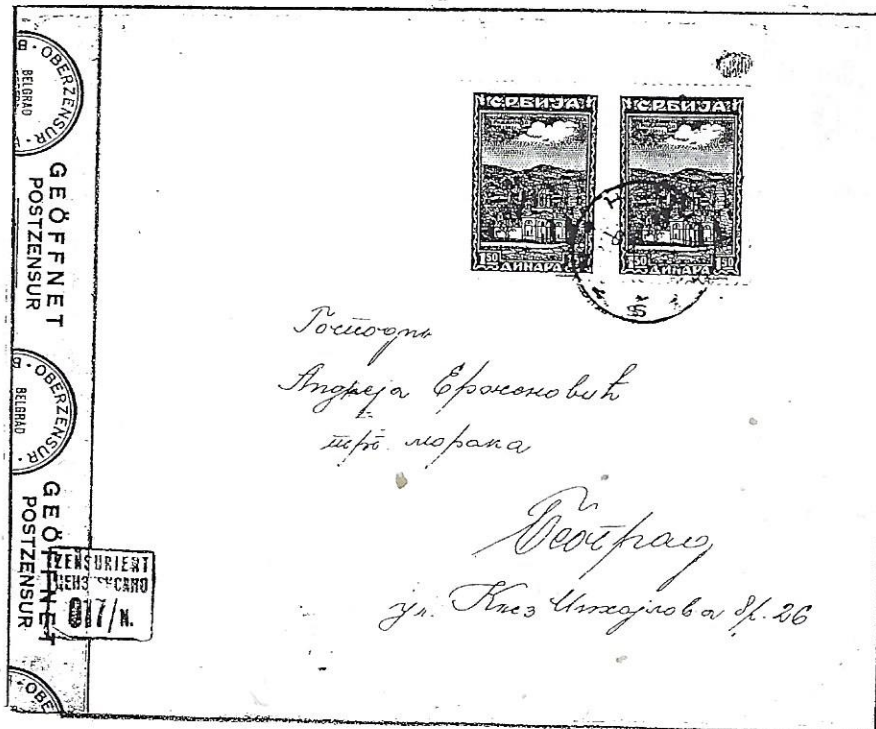 B · OBERZENSUR ·
BELGRAD
GEÖFFNET
POSTZENSUR
B · OBERZENSUR ·
BELGRAD
GEÖFFNET
POSTZENSUR
· OBE
ZENSURIERT
017/N.
СРБИЈА
1.50 ДИНАРА 1.50
СРБИЈА
1.50 ДИНАРА 1.50
Господин
Андреја
трг. марака
Београд
ул. Кнез Михајлова бр. 26